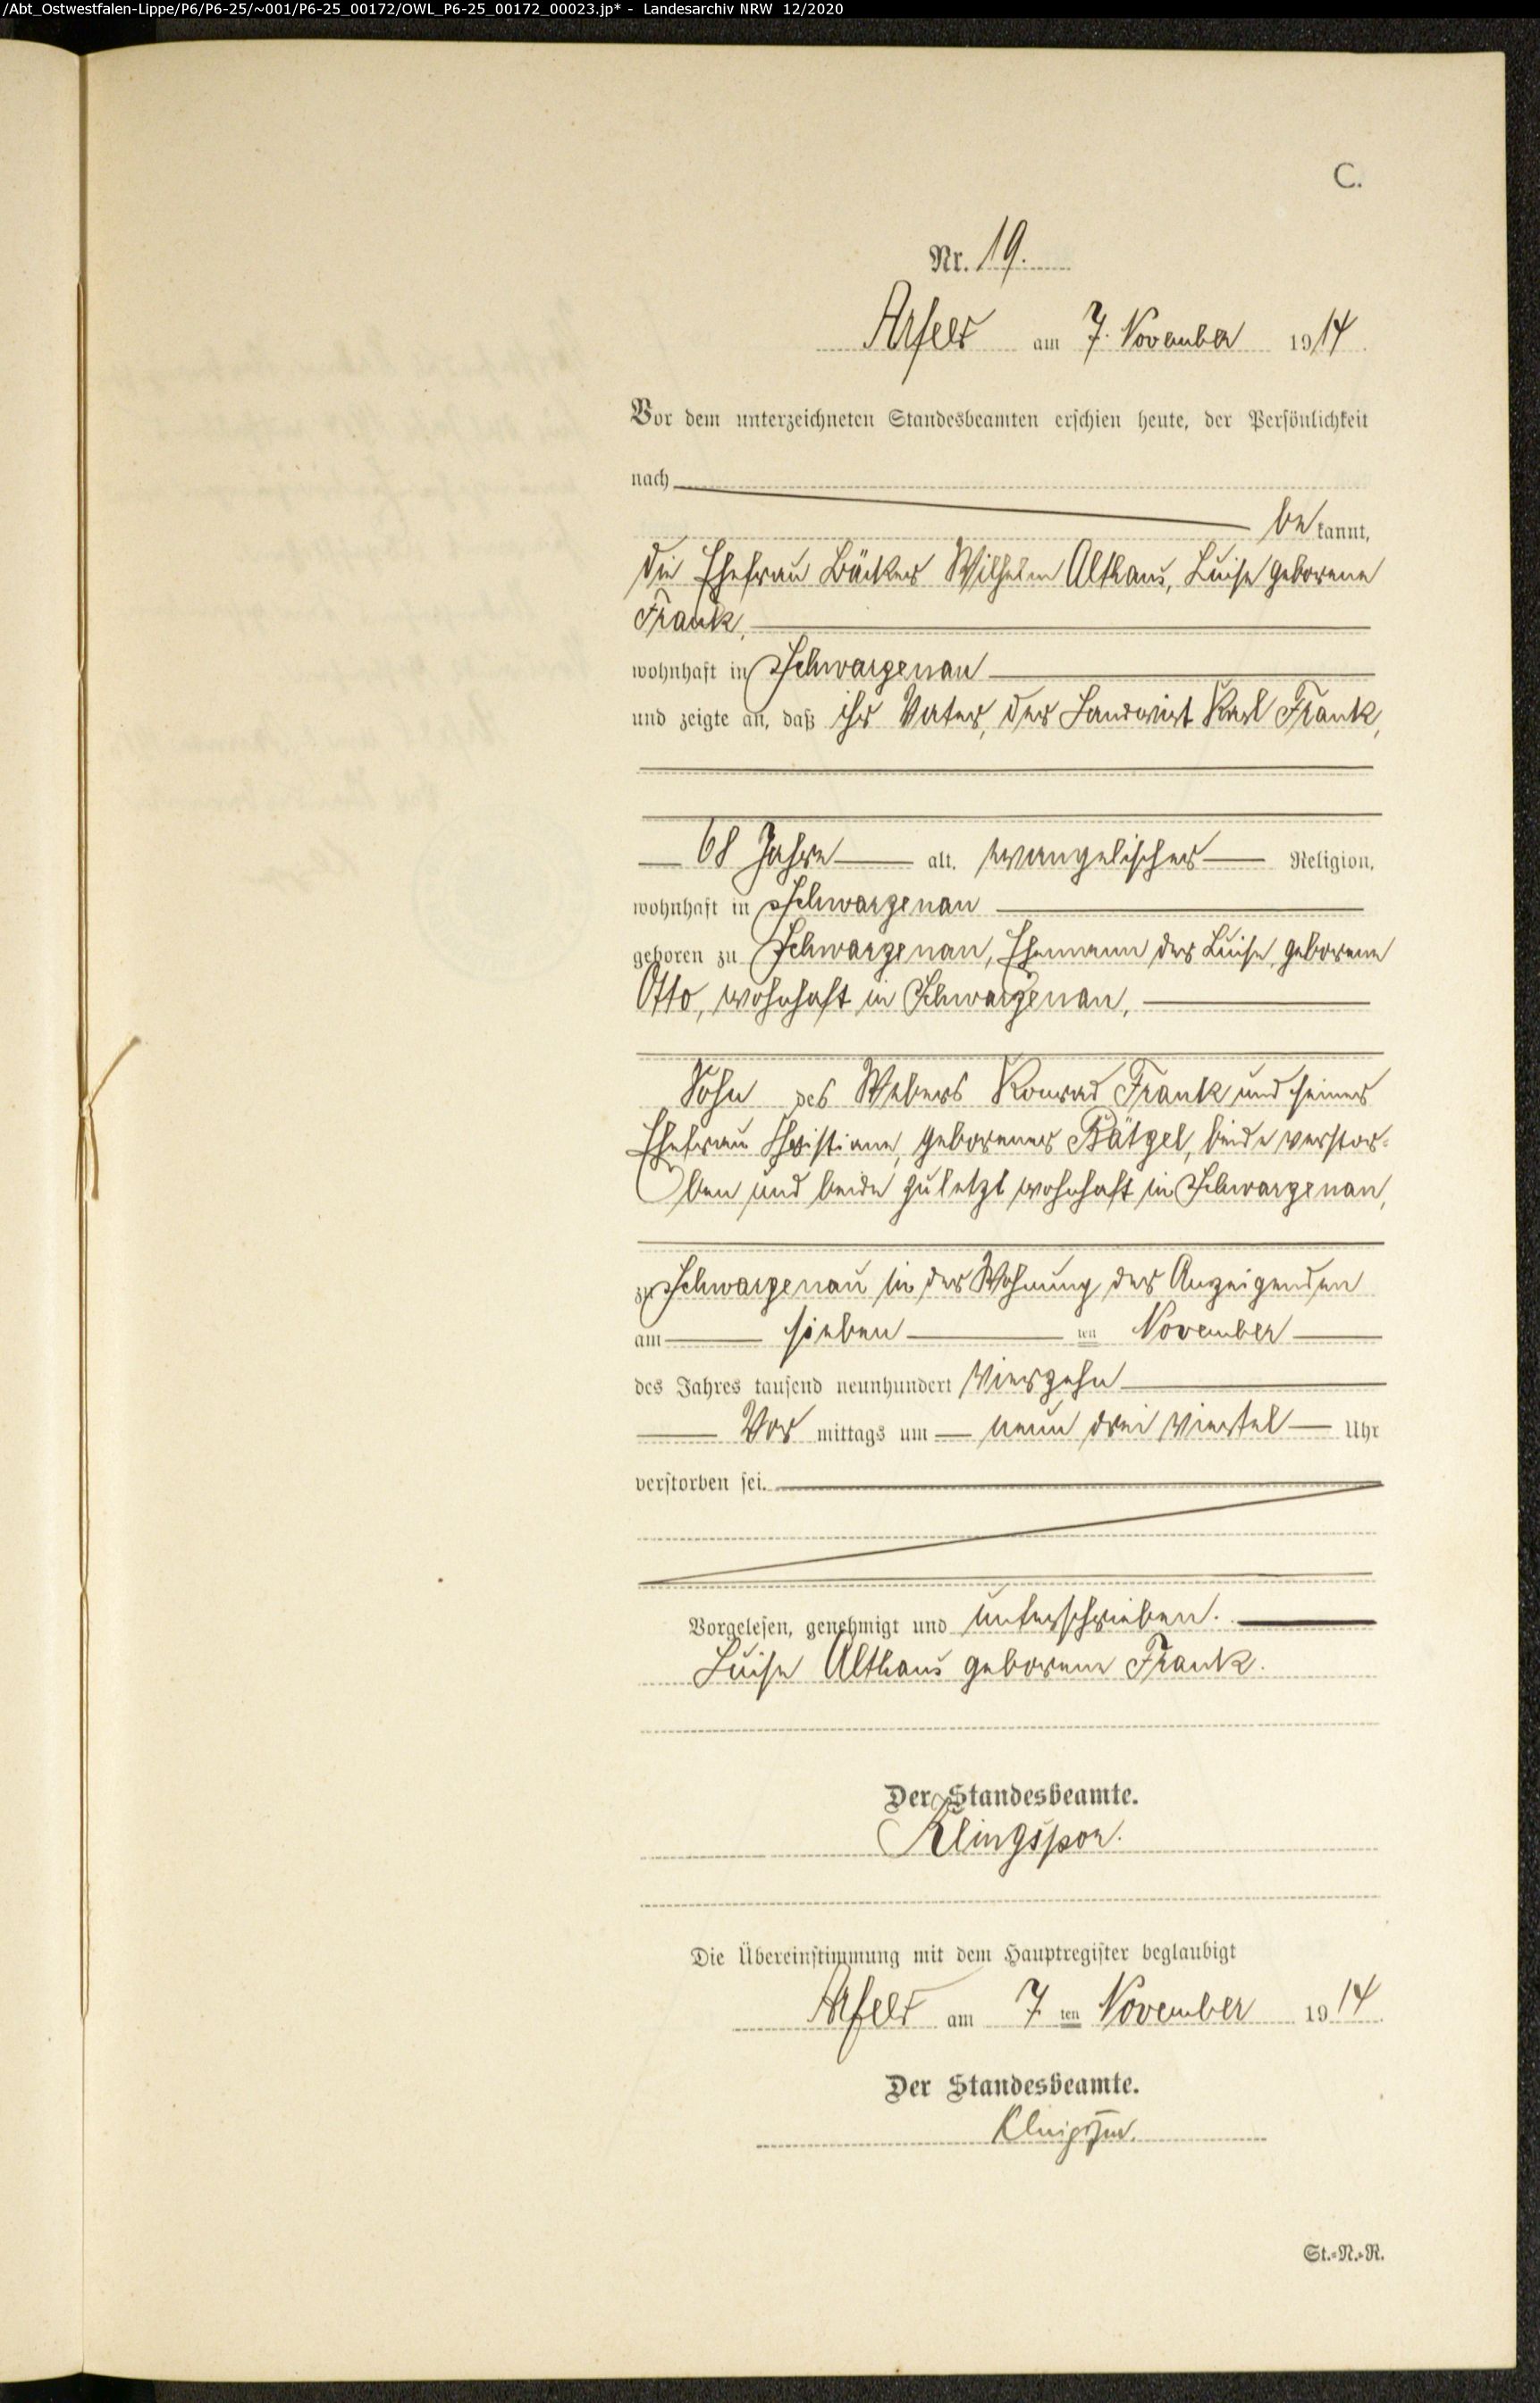 /Abt_Ostwestfalen-Lippe/P6/P6-25/~001/P6-25_00172/OWL_P6-25_00172_00023.jp* - Landesarchiv NRW 12/2020
C.
Nr. 19.
Arfeld am 7. November 1914
Vor dem unterzeichneten Standesbeamten erschien heute, der Persönlichkeit
nach
be kannt,
die Ehefrau Bäcker Wilhelm Althaus, Luise geborene
Frank,
wohnhaft in Schwarzenau
und zeigte an, daß ihr Vater, der Landwirt Karl Frank,
68 Jahre alt, evangelischer Religion,
wohnhaft in Schwarzenau
geboren zu Schwarzenau, Ehemann der Luise, geborene
Otto, wohnhaft in Schwarzenau,
Sohn des Webers Konrad Frank und seiner
Ehefrau Christiane, geborener Bätzel, beide verstor-
ben und beide zuletzt wohnhaft in Schwarzenau,
zu Schwarzenau in der Wohnung der Anzeigenden
am sieben ten November
des Jahres tausend neunhundert vierzehn
Vor mittags um neun drei viertel Uhr
verstorben sei.
Vorgelesen, genehmigt und unterschrieben.
Luise Althaus geborene Frank.
Der Standesbeamte.
Klingspor.
Die Übereinstimmung mit dem Hauptregister beglaubigt
Arfeld am 7 ten November 1914
Der Standesbeamte.
Klingspor.
St.-N.-R.